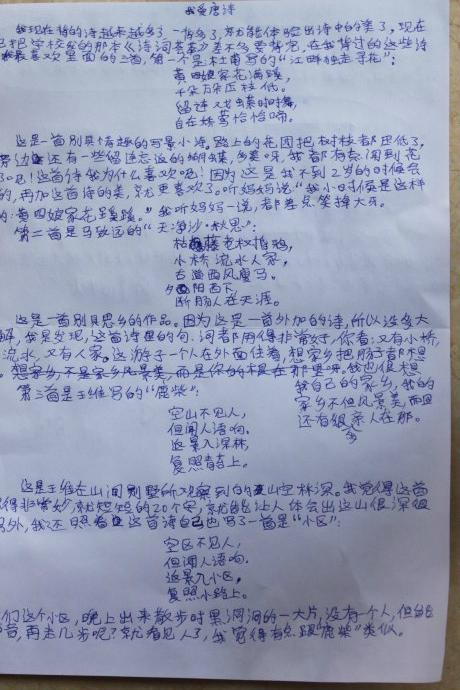 我爱唐诗
我现在背的诗越来越多了,一背多了,就能体验出诗中的美了,现在
已把学校发的那本《诗词荟萃》差不多要背完,在我背过的这些诗
最喜欢里面的三首,第一个是杜甫写的“江畔独走寻花”:
黄四娘家花满蹊,
千朵万朵压枝低。
留连戏蝶时时舞,
自在娇莺恰恰啼。
这是一首别具有趣的写景小诗,路上的花因把树枝都压低了,
旁边还有一些留连忘返的蝴蝶,多美呀,我都有点闻到花
了吧!这首诗我为什么喜欢呢?因为这是我不到2岁的时候会
的,再加这首诗的美,就更喜欢了。听妈妈说“我小时候是这样
的:黄四娘家花蹊蹊。”我听妈妈一说,都差点笑掉大牙。
第二首是马致远的“天净沙·秋思”:
枯藤老树昏鸦,
小桥流水人家,
古道西风瘦马。
夕阳西下,
断肠人在天涯。
这是一首别具思乡的作品。因为这是一首外加的诗,所以没多大
解,我是发现,这首诗里的句、词都用得非常好,你看:又有小桥,
流水,又有人家。这游子一个人在外面住着,想家乡把肠子都想
。想家乡不是家乡风景美,而是你的根在那里呀。我也很想
我自己的家乡,我的
家乡不但风景美而且
还有很多亲人在那。
第三首是王维写的“鹿柴”:
空山不见人,
但闻人语响。
返景入深林,
复照青苔上。
这是王维在山间别墅所观察到的空山林深。我觉得这首
写得非常妙,就短短的20个字,就能让人体会出这山很深很
另外,我还照着这首诗自己也写了一首是“小区”:
空区不见人,
但闻人语响。
返景入小区,
复照小路上。
们这个小区,晚上出来散步时黑洞洞的一大片,没有一个人,但
音,再走几步呢?就看见人了,我写得有点跟“鹿柴”类似。